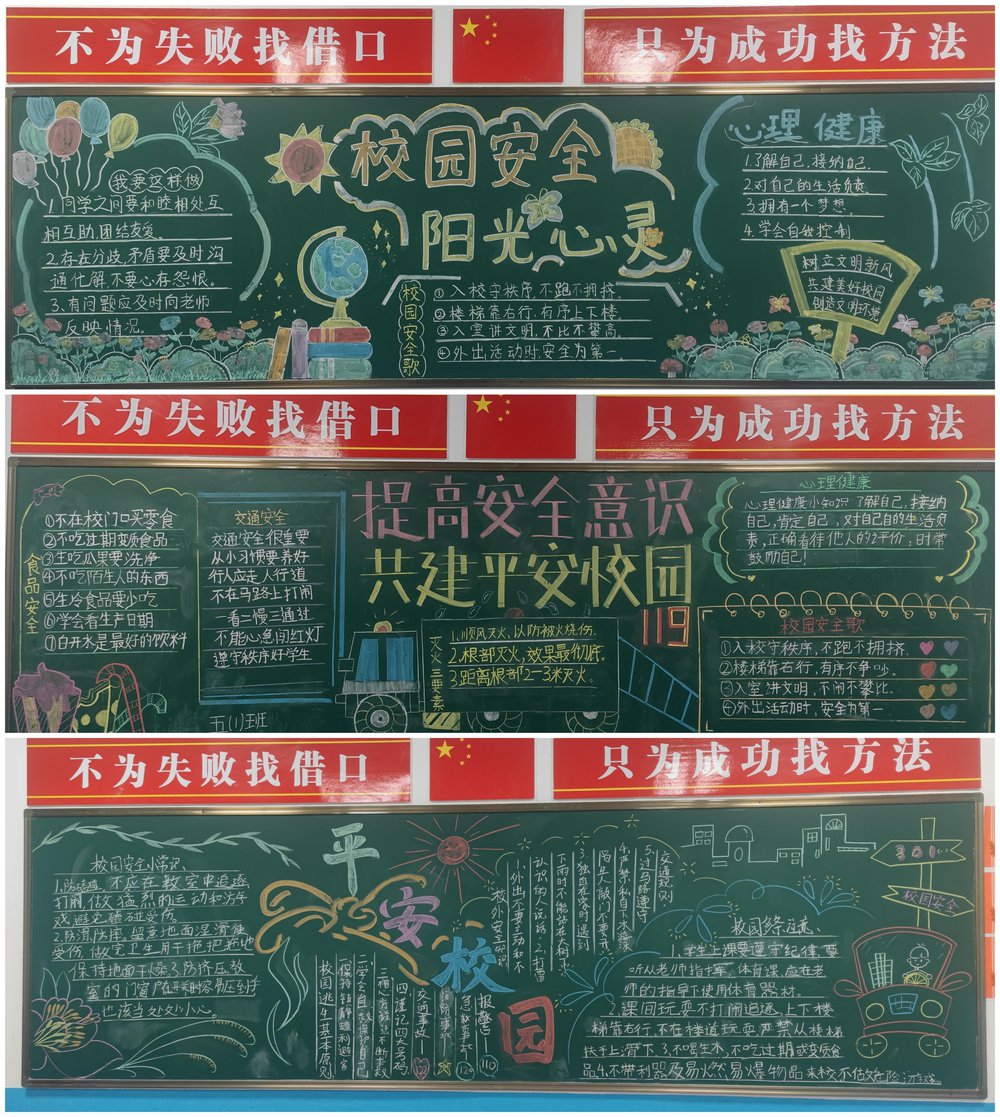 不为失败找借口
只为成功找方法
我要这样做
1.同学之间要和睦相处互
相互助,团结友爱.
2.存在分歧,矛盾要及时沟
通化解,不要心存怨恨.
3.有问题应及时向老师
反映情况.
校园安全
阳光心灵
校园安全歌
①入校守秩序,不跑不拥挤.
②楼梯靠右行,有序上下楼.
③入室讲文明,不比不攀高.
④外出活动时.安全为第一.
心理健康
1.了解自己.接纳自己.
2.对自己的生活负责
3.拥有一个梦想.
4.学会自我控制
树立文明新风
共建美好校园
创造文明环境
不为失败找借口
只为成功找方法
食品安全
①不在校门口买零食
②不吃过期变质食品
③生吃瓜果要洗净
④不吃陌生人的东西
⑤生冷食品要少吃
⑥学会看生产日期
⑦白开水是最好的饮料
交通安全
交通安全很重要
从小习惯要养好
行人应走人行道
不在马路上打闹
一看二慢三通过
不能心急闯红灯
遵守秩序好学生
五(1)班
提高安全意识
共建平安校园
灭火三要素
1.顺风灭火,以防被火烧伤.
2.根部灭火,效果最彻底.
3.距离根部2-3米灭火.
119
心理健康
心理健康小知识:了解自己,接纳
自己,肯定自己,对自己的生活负
责,正确看待他人的评价,时常
鼓励自己!
校园安全歌
①入校守秩序,不跑不拥挤.
②楼梯靠右行,有序不争吵.
③入室讲文明,不闹不攀比.
④外出活动时,安全为第一
不为失败找借口
只为成功找方法
校园安全小常识
不应在教室中追逐
打闹,做猛烈的运动和游
戏避免磕碰受伤
2.防滑,防摔.留意地面湿滑使
受伤,做完卫生用干拖把拖地
保持地面干燥3.防挤压教
室的门窗户在开关时容易压到手
也该当处处小心.
平安校园
校园逃生基本原则
一保持镇静趋利避害
二学会自救保护自己
四谨记四大号码
交通事故—122
急救事故—120
报警台—110
校外安全知识
1.外出不要主动和不
认识的人说话.2.打雷
下雨时不能站在大树下
3.独自在家时遇到
陌生人敲门不要开
4.严禁私自下水游泳
5.过马路遵守
交通规则
校园综合注意
1.学生上课要遵守纪律,要
听从老师指挥,体育课应在老
师的指导下使用体育器材.
2.课间玩耍不打闹追逐,上下楼
梯靠右行,不在楼道玩耍严禁从楼梯
扶手上滑下.3.不喝生水,不吃过期或变质食
品4.不带利器及易燃易爆物品来校不做危险游戏
301
校园安全